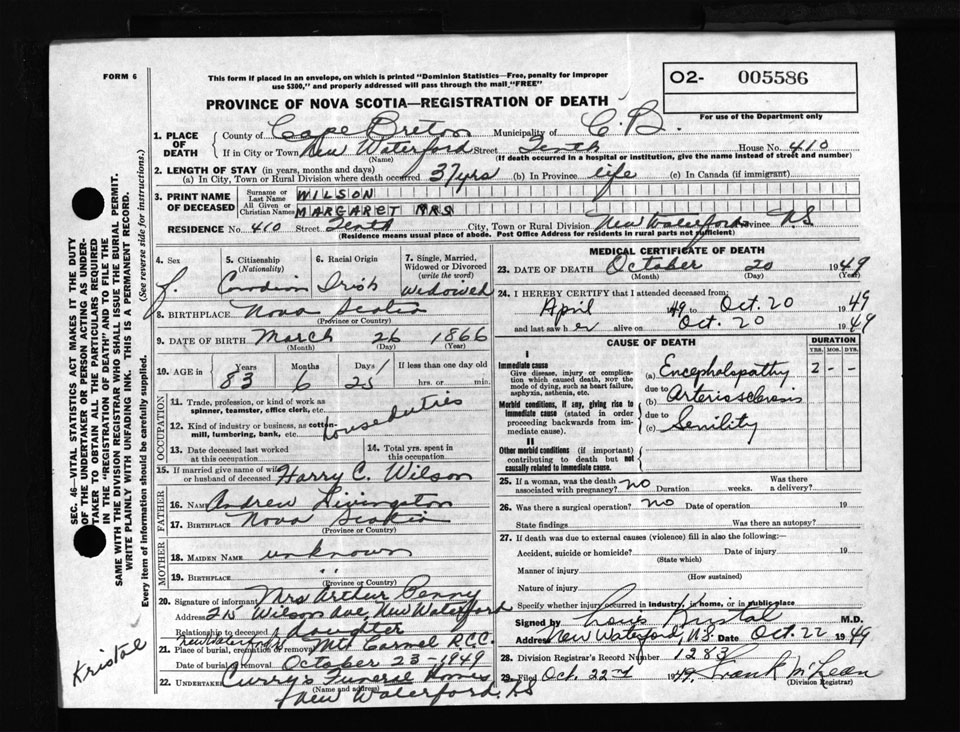 FORM 6
This form if placed in an envelope, on which is printed "Dominion Statistics—Free, penalty for improper
use $300," and properly addressed will pass through the mail "FREE"
O2- 005586
For use of the Department only
PROVINCE OF NOVA SCOTIA—REGISTRATION OF DEATH
1. PLACE OF DEATH
County of Cape Breton Municipality of C.B.
If in City or Town New Waterford Street Tenth House No. 410
(Name) (If death occurred in a hospital or institution, give the name instead of street and number)
2. LENGTH OF STAY (in years, months and days)
(a) In City, Town or Rural Division where death occurred 37yrs (b) In Province life (c) In Canada (if immigrant)
3. PRINT NAME OF DECEASED
Surname or Last Name WILSON
All Given or Christian Names MARGARET MRS
RESIDENCE No. 410 Street Tenth City, Town or Rural Division New Waterford Province N.S
(Residence means usual place of abode. Post Office Address for residents in rural parts not sufficient)
4. Sex f.
5. Citizenship (Nationality) Canadian
6. Racial Origin Irish
7. Single, Married, Widowed or Divorced (write the word) widowed
8. BIRTHPLACE Nova Scotia
(Province or Country)
9. DATE OF BIRTH March 26 1866
(Month) (Day) (Year)
10. AGE in Years 83 Months 6 Days 25 If less than one day old
hrs. or min.
OCCUPATION
11. Trade, profession, or kind of work as
spinner, teamster, office clerk, etc.
12. Kind of industry or business, as cotton-
mill, lumbering, bank, etc. house duties
13. Date deceased last worked
at this occupation
14. Total yrs. spent in
this occupation
15. If married give name of wife
or husband of deceased Harry C. Wilson
FATHER
16. Name Andrew Livingston
17. Birthplace Nova Scotia
(Province or Country)
MOTHER
18. Maiden Name unknown
19. Birthplace " "
(Province or Country)
20. Signature of informant Mrs Arthur Penny
Address 215 Wilson Ave, New Waterford
Relationship to deceased daughter
New Waterford
21. Place of burial, cremation or removal Mt Carmel R.C.C.
Date of burial or removal October 23-1949
22. UNDERTAKER Curry's Funeral Homes
(Name and address)
New Waterford, NS
MEDICAL CERTIFICATE OF DEATH
23. DATE OF DEATH October 20 1949
(Month) (Day) (Year)
24. I HEREBY CERTIFY that I attended deceased from:
April 49 to Oct. 20 1949
and last saw her alive on Oct. 20 1949
CAUSE OF DEATH
DURATION
YRS. MOS. DYS.
I
Immediate cause
Give disease, injury or complication which caused death, NOT the mode of dying, such as heart failure, asphyxia, asthenia, etc.
(a) Encephalopathy 2 - -
due to
Morbid conditions, if any, giving rise to immediate cause (stated in order proceeding backwards from immediate cause).
(b) Arteriosclerosis
due to
(c) Senility
II
Other morbid conditions (if important) contributing to death but not causally related to immediate cause.
25. If a woman, was the death
associated with pregnancy? no Duration weeks. Was there
a delivery?
26. Was there a surgical operation? no Date of operation 19
State findings Was there an autopsy?
27. If death was due to external causes (violence) fill in also the following:
Accident, suicide or homicide? Date of injury 19
(State which)
Manner of injury
(How sustained)
Nature of injury
Specify whether injury occurred in industry, in home, or in public place
Signed by Louis Kristal M.D.
Address New Waterford, N.S. Date Oct. 22 1949
28. Division Registrar's Record Number 1283
29. Filed Oct. 22nd 1949. Frank McLean
(Division Registrar)
SEC. 46—VITAL STATISTICS ACT MAKES IT THE DUTY
OF THE UNDERTAKER OR PERSON ACTING AS UNDER-
TAKER TO OBTAIN ALL THE PARTICULARS REQUIRED
IN THE "REGISTRATION OF DEATH" AND TO FILE THE
SAME WITH THE DIVISION REGISTRAR WHO SHALL ISSUE THE BURIAL PERMIT.
WRITE PLAINLY WITH UNFADING INK. THIS IS A PERMANENT RECORD.
Every item of information should be carefully supplied. (See reverse side for instructions.)
Kristal